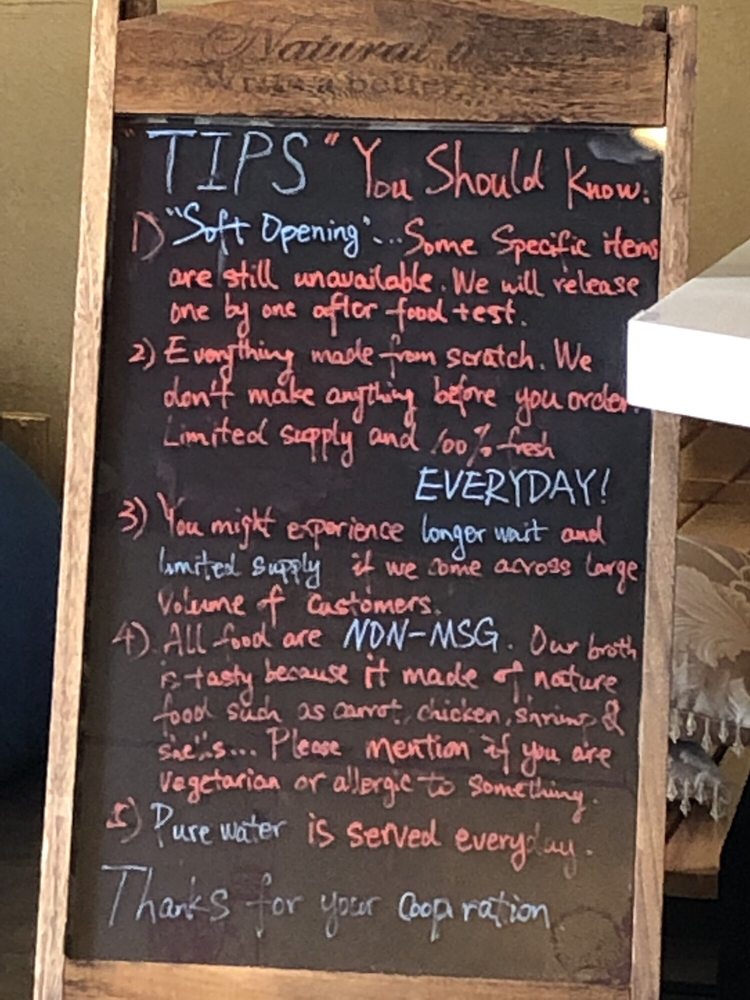 Natural
"TIPS" You Should Know:
1) "Soft Opening"... Some Specific items
are still unavailable. We will release
one by one after food test.
2) Everything made from scratch. We
don't make anything before you order.
Limited supply and 100% fresh
EVERYDAY!
3) You might experience longer wait and
limited supply if we come across large
Volume of Customers.
4). All food are NON-MSG. Our broth
is tasty because it made of nature
food such as carrot, chicken, shrimp &
shells... Please mention if you are
vegetarian or allergic to something.
5) Pure water is served everyday.
Thanks for your Cooperation.